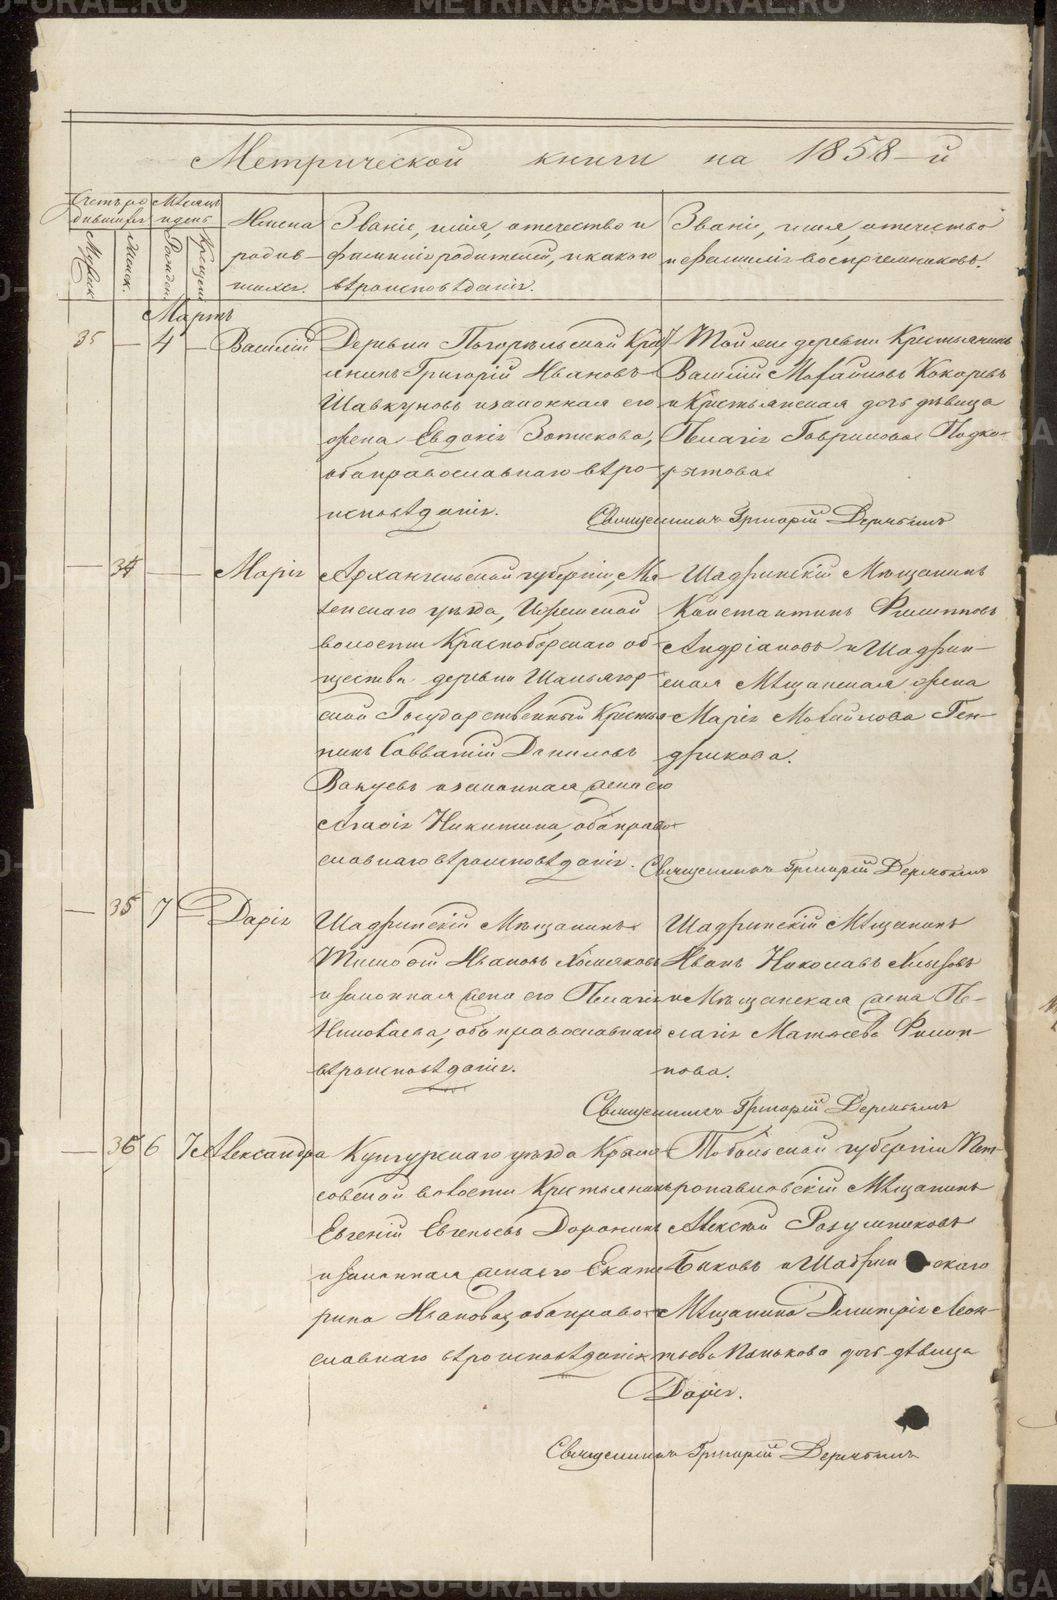 Метрической книги на 1858-й
Счетъ ро
дившихся
Мѣсяцъ
и день
Мужск.
Женск.
Рожден.
Крещен.
Имена
родив-
шихся.
Званіе, имя, отечество и
фамилія родителей, и какого
вѣроисповѣданія.
Званіе, имя, отечество
и фамилія воспріемниковъ.
Мартъ
35 — 4 — Василій
Деревни Погорѣльской Крестья
янинъ Григорій Ивановъ
Шавкуновъ и законная его
жена Евдокія Зотикова,
оба православнаго вѣро-
исповѣданія.
Той же деревни Крестьянинъ
Василій Михайловъ Кокаревъ
и Крестьянская дочь дѣвица
Пелагія Гаврилова Подко-
рытова
Священникъ Григорій
— 34 — — Марія
Архангельской губерніи, Ме-
зенскаго уѣзда,
волости Красноборскаго об-
щества деревни
ской Государственный Крестья
нинъ Савватій Даниловъ
и законная жена его
Агафія Никитина, оба право
славнаго вѣроисповѣданія.
Шадринскій Мѣщанинъ
Константинъ Филиповъ
Андріановъ и Шадрин-
ская Мѣщанская жена
Марія Михайлова Ген-
дрикова.
Священникъ Григорій
— 35 7 — Дарія
Шадринскій Мѣщанинъ
Тимофей Ивановъ Хомяковъ
и законная жена его Пелагія
Николаева, оба православнаго
вѣроисповѣданія.
Шадринскій Мѣщанинъ
Иванъ Николаевъ
и Мѣщанская жена Пе-
лагія Матвеева Филип-
пова.
Священникъ Григорій
— 36 6 7 Александра
Кунгурскаго уѣзда
волости Крестьянинъ
Евгеній Евгеньевъ Доронинъ
и законная жена его Екате
рина Иванова, оба право
славнаго вѣроисповѣданія
Тобольской губерніи Пет-
ропавловскій Мѣщанинъ
Алексѣй Разумниковъ
Быковъ и Шадринскаго
Мѣщанина Димитрія Леон-
тьева Панькова дочь дѣвица
Дарія.
Священникъ Григорій
METRIKI.GASU-URAL.RU